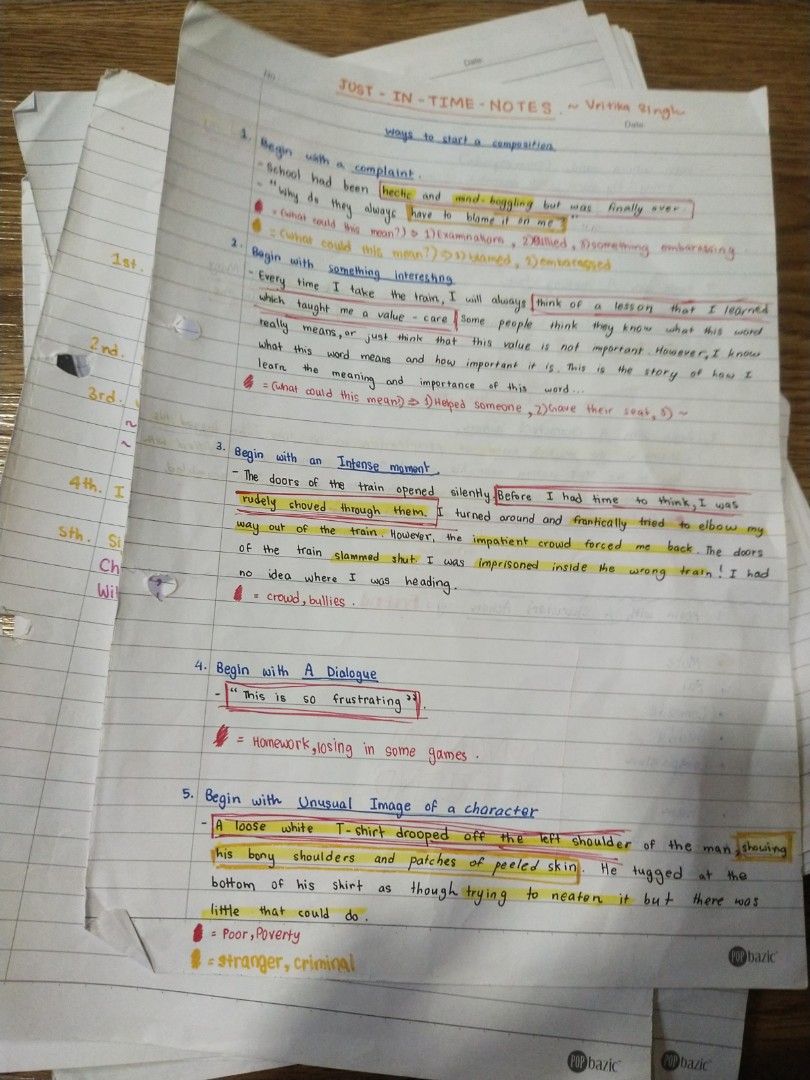 No.
Date
JUST - IN - TIME - NOTES. ~ Vritika Singh
Date
Ways to start a composition
1. Begin with a complaint.
- School had been hectic and mind-boggling but was finally over.
- "Why do they always have to blame it on me?"
= (what could this mean?) ⇒ 1) Examinations, 2) Bullied, 3) something embarassing.
= (what could this mean?) ⇒ 1) blamed, 2) embarassed
2. Begin with something interesting
- Every time I take the train, I will always think of a lesson that I learned
which taught me a value - care. Some people think they know what this word
really means, or just think that this value is not important. However, I know
what this word means and how important it is. This is the story of how I
learn the meaning and importance of this word...
= (what could this mean?) ⇒ 1) Helped someone, 2) Gave their seat, 3) ~
3. Begin with an Intense moment.
- The doors of the train opened silently. Before I had time to think, I was
rudely shoved through them. I turned around and frantically tried to elbow my
way out of the train. However, the impatient crowd forced me back. The doors
of the train slammed shut. I was imprisoned inside the wrong train! I had
no idea where I was heading.
= crowd, bullies.
4. Begin with A Dialogue
- "This is so frustrating".
= Homework, losing in some games.
5. Begin with Unusual Image of a character
- A loose white T-shirt drooped off the left shoulder of the man, showing
his bony shoulders and patches of peeled skin. He tugged at the
bottom of his shirt as though trying to neaten it but there was
little that could do.
= Poor, Poverty
= stranger, criminal
POP bazic
1st.
2nd.
3rd.
~
~
4th. I
5th. Si
Ch
Wil
POP bazic
POP bazic